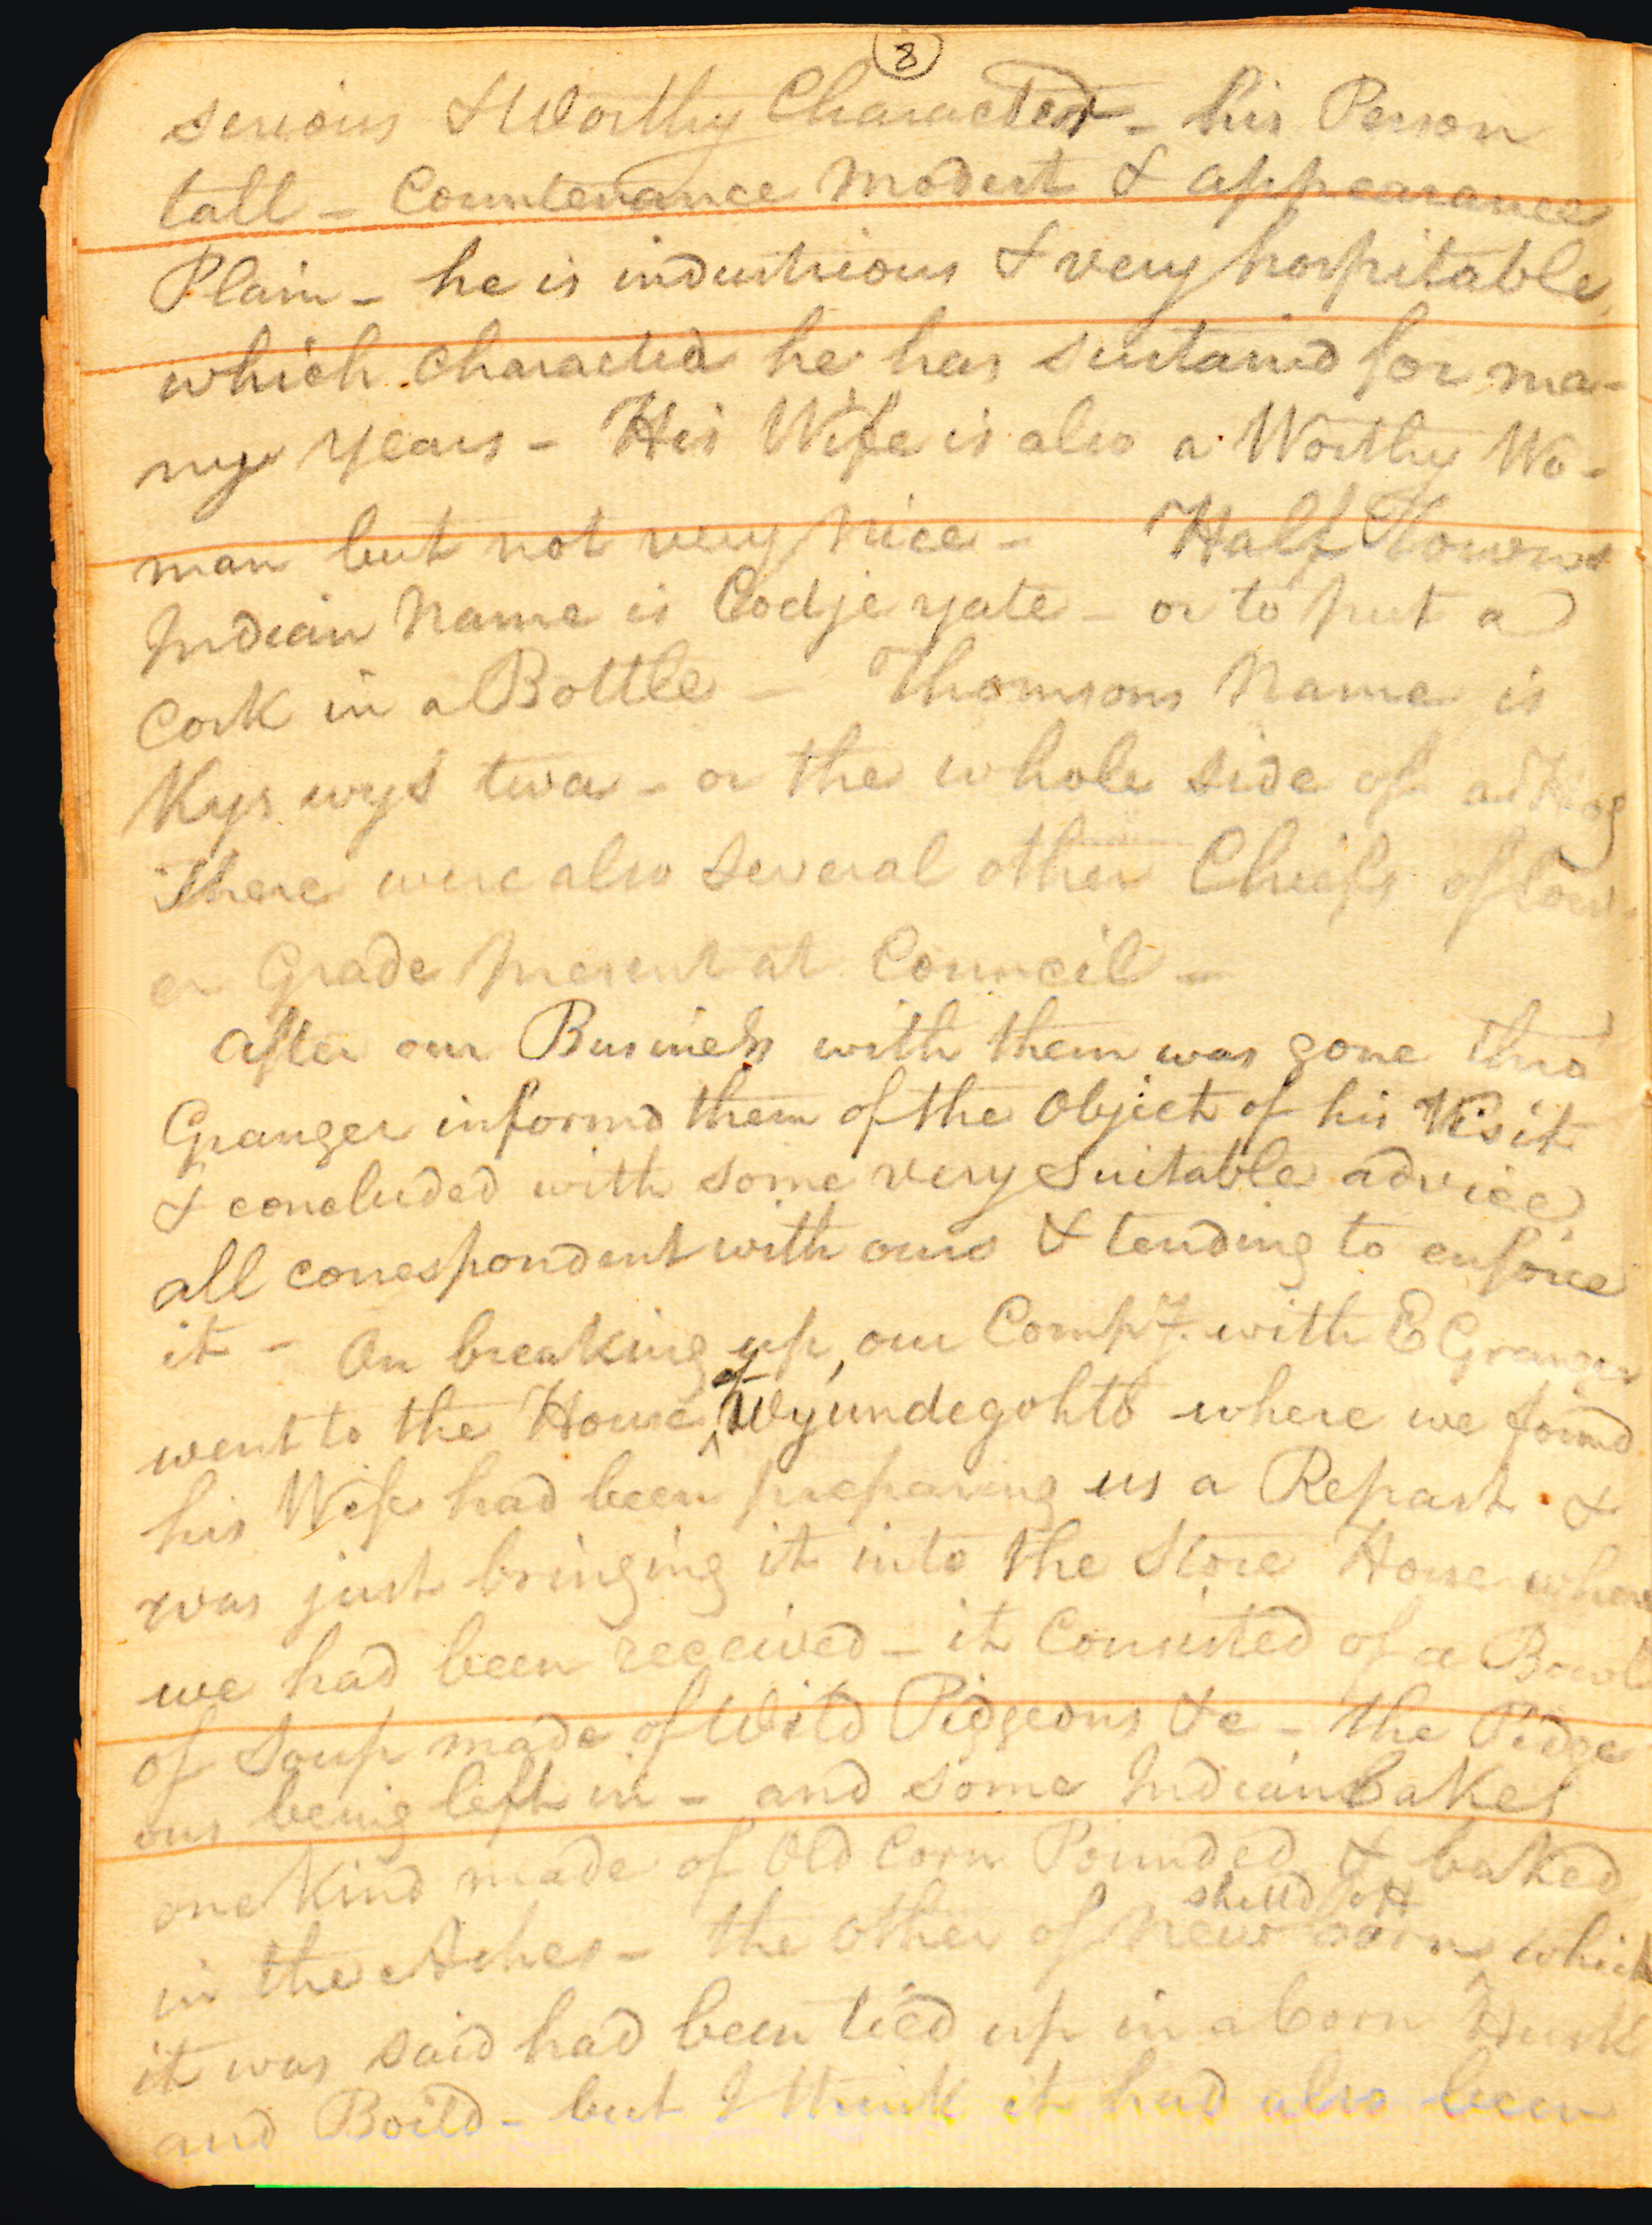 8
serious & Worthy Character - his Person
tall - Countenance modest & appearance
Plain - he is industrious & very hospitable
which character he has sustaind for ma-
ny years - His Wife is also a Worthy Wo-
man but not very nice - Half Towns
Indian Name is Codje yate - or to put a
Cork in a Bottle - Thomsons Name is
Kys wys twa - or the whole side of a Hog
There were also several other Chiefs of low-
er Grade present at Council -
After our Business with them was gone thro
Granger informd them of the Object of his Visit
& concluded with some very suitable advice
all correspondent with ours & tending to enforce
it - On breaking up, our Compy. with E Granger
went to the House of Wyundegohto where we found
his Wife had been preparing us a Repast &
was just bringing it into the Store House where
we had been received - it Consisted of a Bowl
of Soup made of Wild Pidgeons &c - the Pidge
ons being left in - and some Indian Cakes
one Kind made of Old Corn Pounded & baked
in the Ashes - the other of New Corn shelld off which
it was said had been tied up in a Corn Husk
and Boild - but I think it had also been